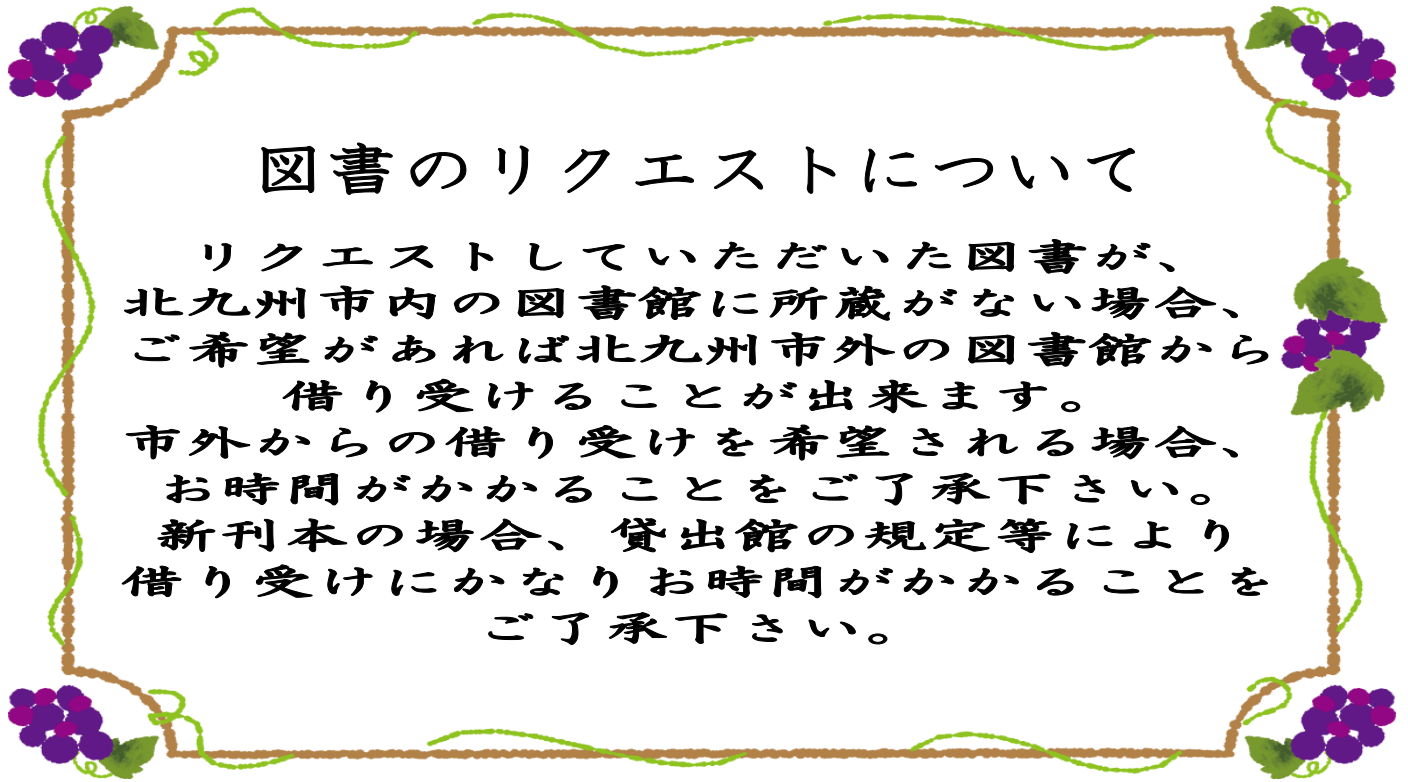 図書のリクエストについて
リクエストしていただいた図書が、
北九州市内の図書館に所蔵がない場合、
ご希望があれば北九州市外の図書館から
借り受けることが出来ます。
市外からの借り受けを希望される場合、
お時間がかかることをご了承下さい。
新刊本の場合、貸出館の規定等により
借り受けにかなりお時間がかかることを
ご了承下さい。